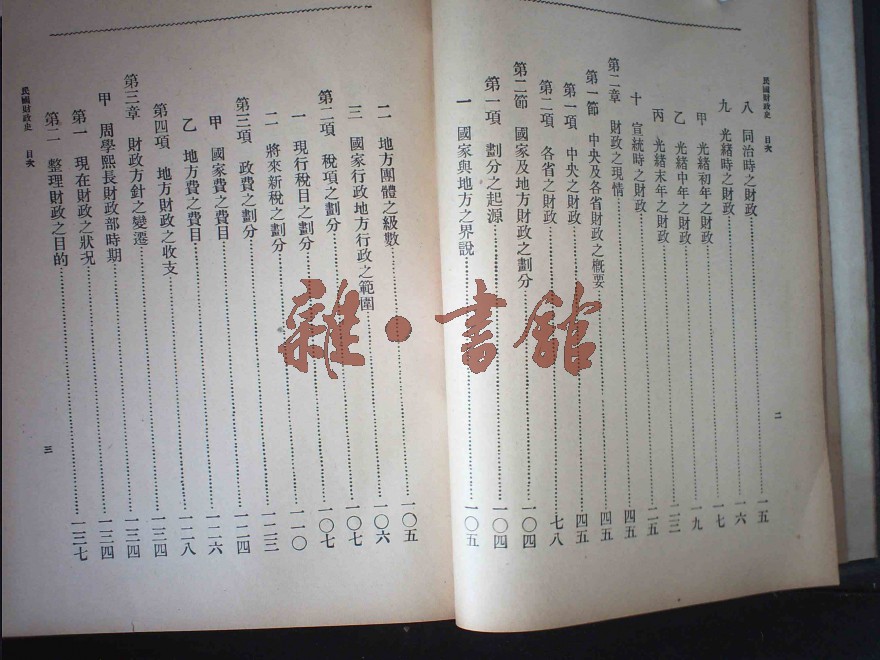 民國財政史 目次
八 同治時之財政……一五
九 光緒時之財政……一六
甲 光緒初年之財政……一七
乙 光緒中年之財政……一九
丙 光緒末年之財政……二三
十 宣統時之財政……二五
第二章 財政之現情……四五
第一節 中央及各省財政之概要……四五
第一項 中央之財政……四五
第二項 各省之財政……七八
第二節 國家及地方財政之劃分……一〇四
第一項 劃分之起源……一〇四
一 國家與地方之界說……一〇五
二
二 地方團體之級數……一〇五
三 國家行政地方行政之範圍……一〇六
第二項 稅項之劃分……一〇七
一 現行稅目之劃分……一〇七
二 將來新稅之劃分……一一〇
第三項 政費之劃分……一二三
甲 國家費之費目……一二四
乙 地方費之費目……一二六
第四項 地方財政之收支……一二八
第三章 財政方針之變遷……一三四
甲 周學熙長財政部時期……一三四
第一 現在財政之狀況……一三四
第二 整理財政之目的……一三七
民國財政史 目次
三
雜·書館